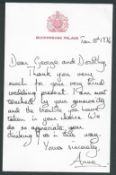 BUCKINGHAM PALACE
Dear George and Dorothy,
Thank you very
much for your very kind
wedding present. I am most
touched by your generosity
and the trouble you have
taken in your choice. We
do so appreciate your
thinking of us in this way.
Yours sincerely,
Anne